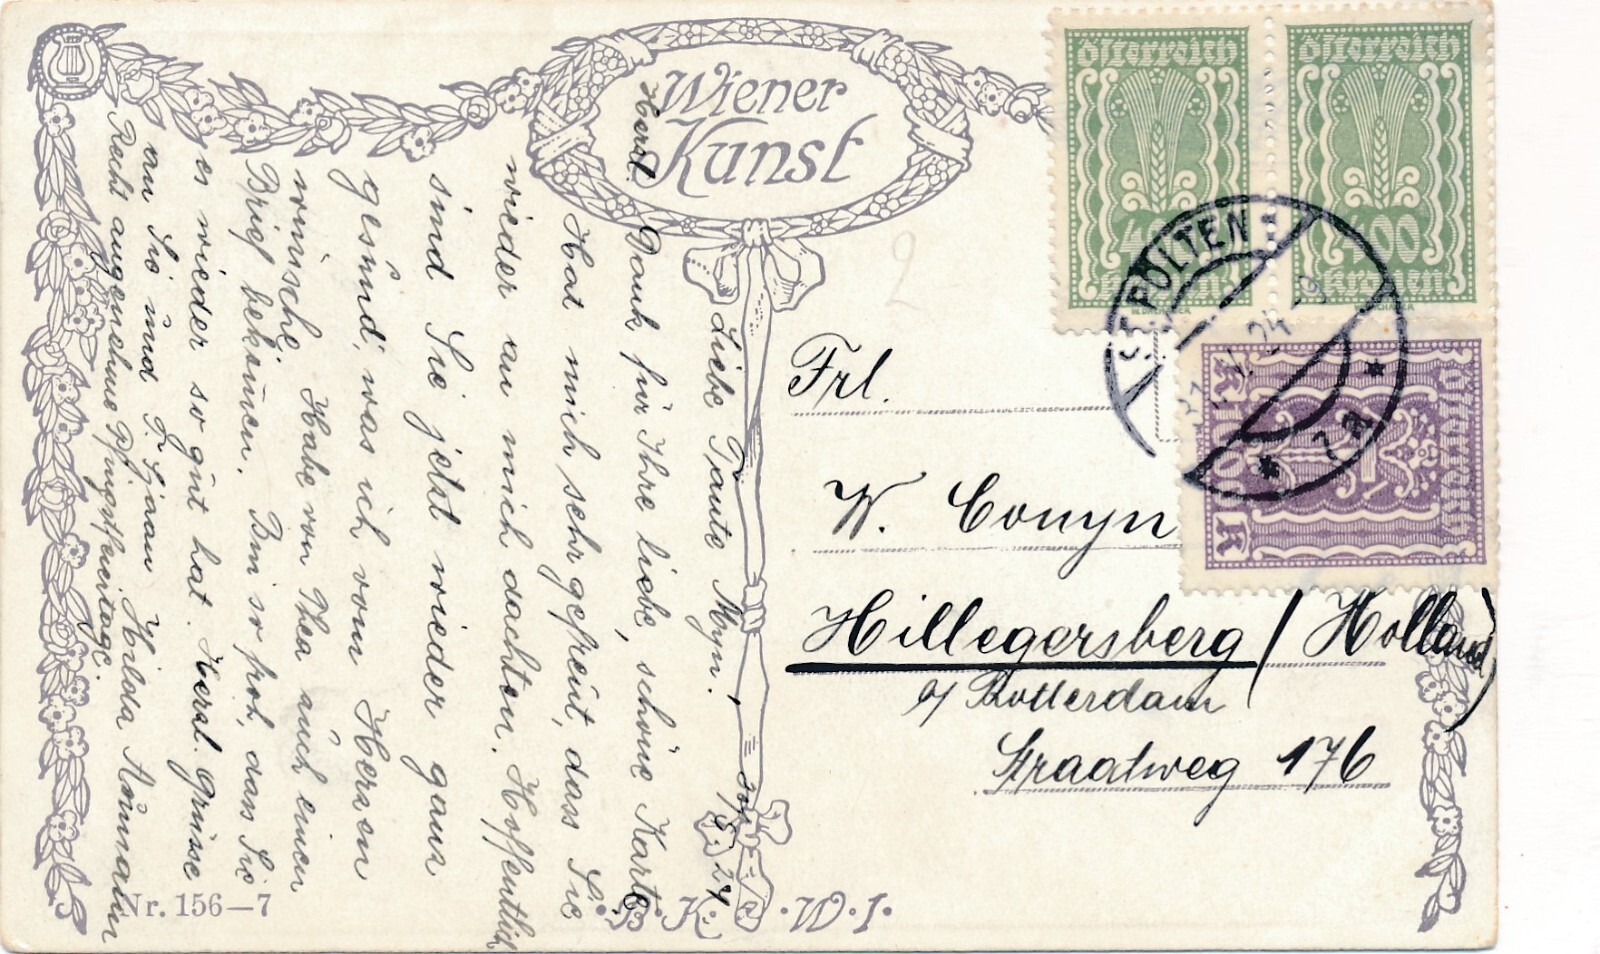 Wiener
Kunst
Österreich
400
Kronen
Österreich
400
Kronen
Österreich
K
K
ST. PÖLTEN
V. 24
7a
Frl.
W. Conyn
Hillegersberg / Holland
a/ Rotterdam
Straatweg 176
30/5. 24
Liebe Tante Myn.
Herzl. Dank für Ihre liebe, schöne Karte
Hat mich sehr gefreut, dass Sie
wieder an mich dachten. Hoffentlich
sind Sie jetzt wieder ganz
gesund, was ich vom Herzen
wünsche. Habe von Thea auch einen
Brief bekommen. Bin so froh, dass Sie
es wieder so gut hat. Herzl. Grüsse
an Sie und Hilda Naumann
Recht angenehme Pfingstfeiertage.
Nr. 156—7
B·K·W·I·
2